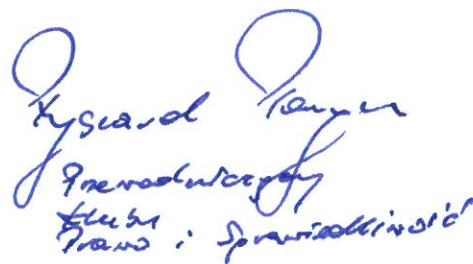 Ryszard
Przewodniczący
Klubu
Prawo i Sprawiedliwość